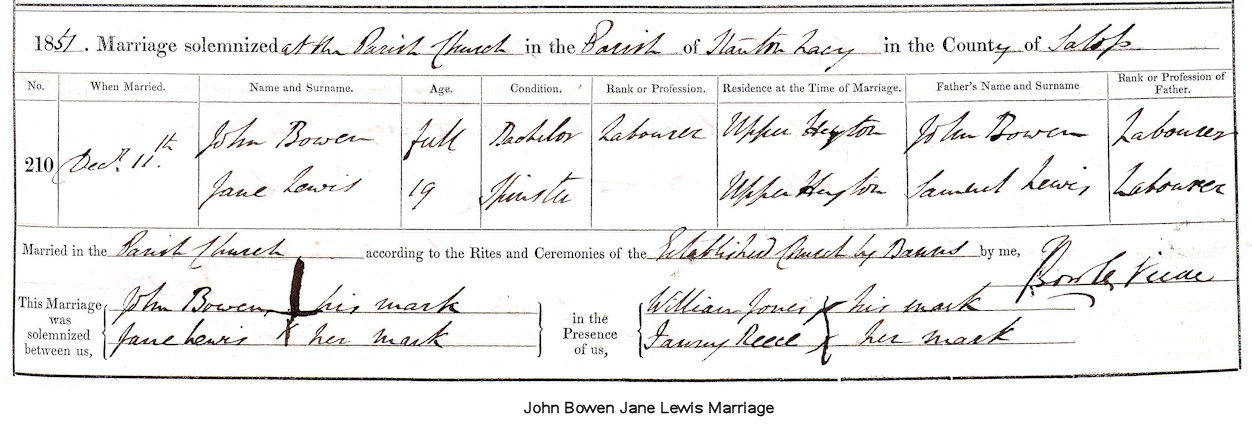 1851. Marriage solemnized at the Parish Church in the Parish of Stanton Lacy in the County of Salop
No. When Married. Name and Surname. Age. Condition. Rank or Profession. Residence at the Time of Marriage. Father's Name and Surname Rank or Profession of Father.
210 Decr. 11th. John Bowen full Bachelor Labourer Upper Heyton John Bowen Labourer
Jane Lewis 19 Spinster Upper Heyton Samuel Lewis Labourer
Married in the Parish Church according to the Rites and Ceremonies of the Established Church by Banns by me,
This Marriage was solemnized between us, John Bowen his mark in the Presence of us, William Jones his mark
Jane Lewis X her mark Fanny Reece her mark
John Bowen Jane Lewis Marriage